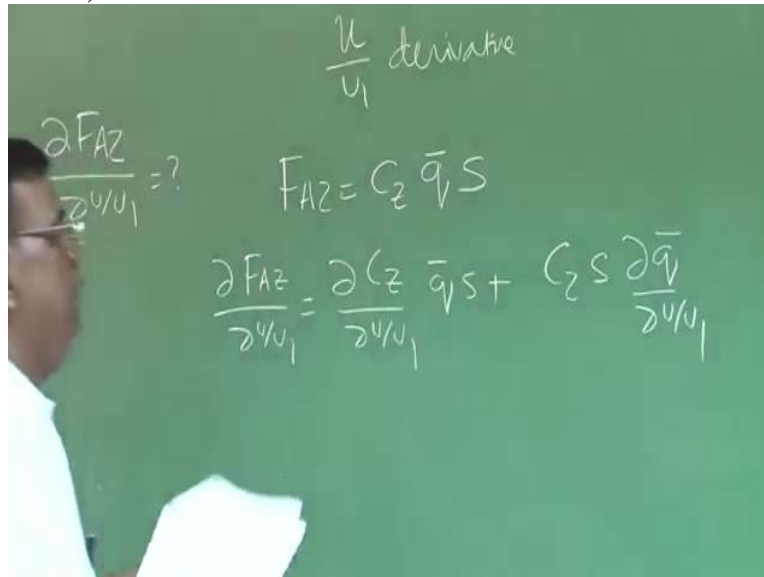 u/U₁ derivative
∂F_AZ/∂u/U₁ = ?
F_AZ = C_Z q̄ S
∂F_AZ/∂u/U₁ = ∂C_Z/∂u/U₁ q̄ S + C_Z S ∂q̄/∂u/U₁